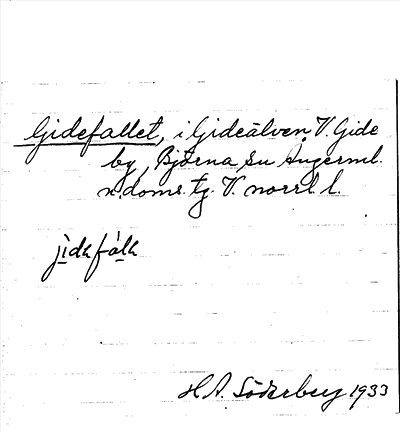 Gidefallet, i Gideälven V. Gide
by, Björna sn Ångerml.
n. doms. tg. V. norrl. l.
jìdɛfàlɛ
H A. Söderberg 1933